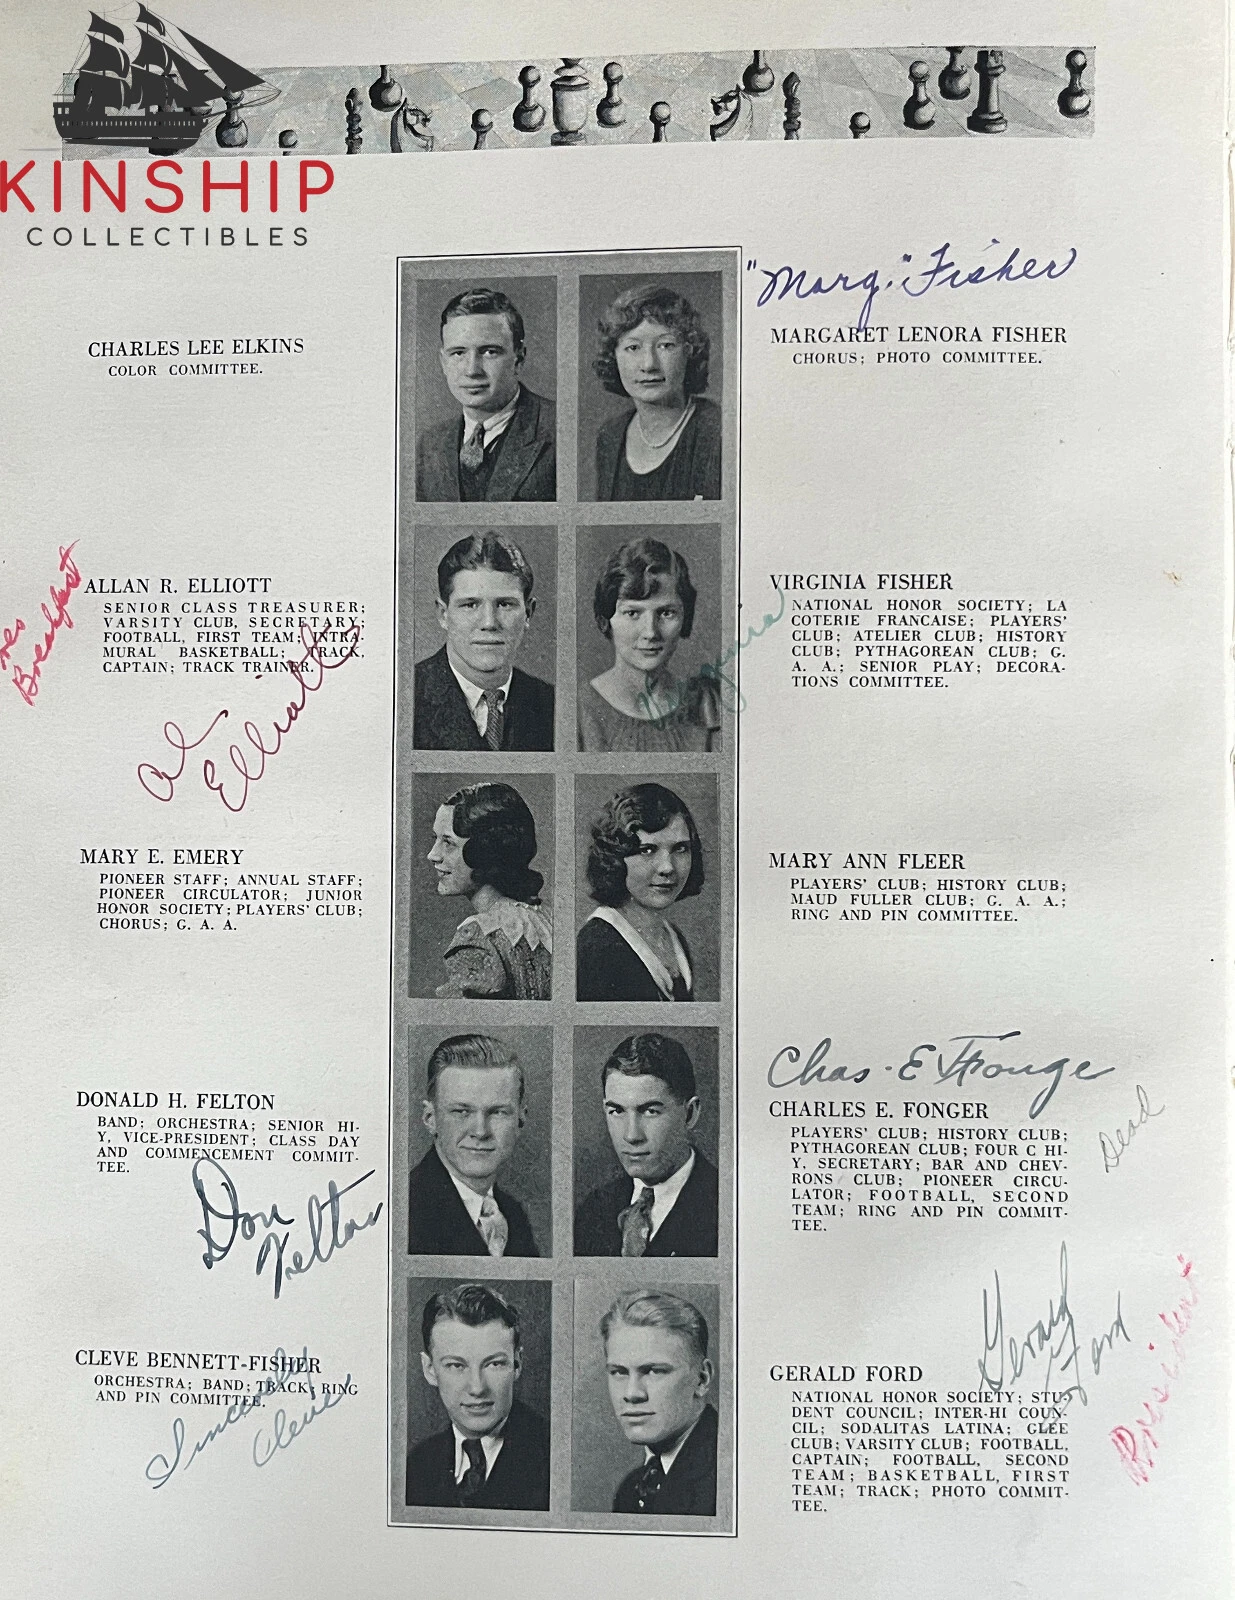 KINSHIP
COLLECTIBLES
"Marg." Fisher
CHARLES LEE ELKINS
COLOR COMMITTEE.
MARGARET LENORA FISHER
CHORUS; PHOTO COMMITTEE.
Breakfast
ALLAN R. ELLIOTT
SENIOR CLASS TREASURER;
VARSITY CLUB, SECRETARY;
FOOTBALL, FIRST TEAM; INTRA-
MURAL BASKETBALL; TRACK,
CAPTAIN; TRACK TRAINER.
Al
Elliott
VIRGINIA FISHER
NATIONAL HONOR SOCIETY; LA
COTERIE FRANCAISE; PLAYERS'
CLUB; ATELIER CLUB; HISTORY
CLUB; PYTHAGOREAN CLUB; G.
A. A.; SENIOR PLAY; DECORA-
TIONS COMMITTEE.
Virginia
MARY E. EMERY
PIONEER STAFF; ANNUAL STAFF;
PIONEER CIRCULATOR; JUNIOR
HONOR SOCIETY; PLAYERS' CLUB;
CHORUS; G. A. A.
MARY ANN FLEER
PLAYERS' CLUB; HISTORY CLUB;
MAUD FULLER CLUB; G. A. A.;
RING AND PIN COMMITTEE.
DONALD H. FELTON
BAND; ORCHESTRA; SENIOR HI-
Y, VICE-PRESIDENT; CLASS DAY
AND COMMENCEMENT COMMIT-
TEE.
Don
Felton
Chas. E Fonger
CHARLES E. FONGER
PLAYERS' CLUB; HISTORY CLUB;
PYTHAGOREAN CLUB; FOUR C HI-
Y, SECRETARY; BAR AND CHEV-
RONS CLUB; PIONEER CIRCU-
LATOR; FOOTBALL, SECOND
TEAM; RING AND PIN COMMIT-
TEE.
Dead
CLEVE BENNETT-FISHER
ORCHESTRA; BAND; TRACK; RING
AND PIN COMMITTEE.
Sincerely
Cleve
Gerald
Ford
President
GERALD FORD
NATIONAL HONOR SOCIETY; STU-
DENT COUNCIL; INTER-HI COUN-
CIL; SODALITAS LATINA; GLEE
CLUB; VARSITY CLUB; FOOTBALL,
CAPTAIN; FOOTBALL, SECOND
TEAM; BASKETBALL, FIRST
TEAM; TRACK; PHOTO COMMIT-
TEE.